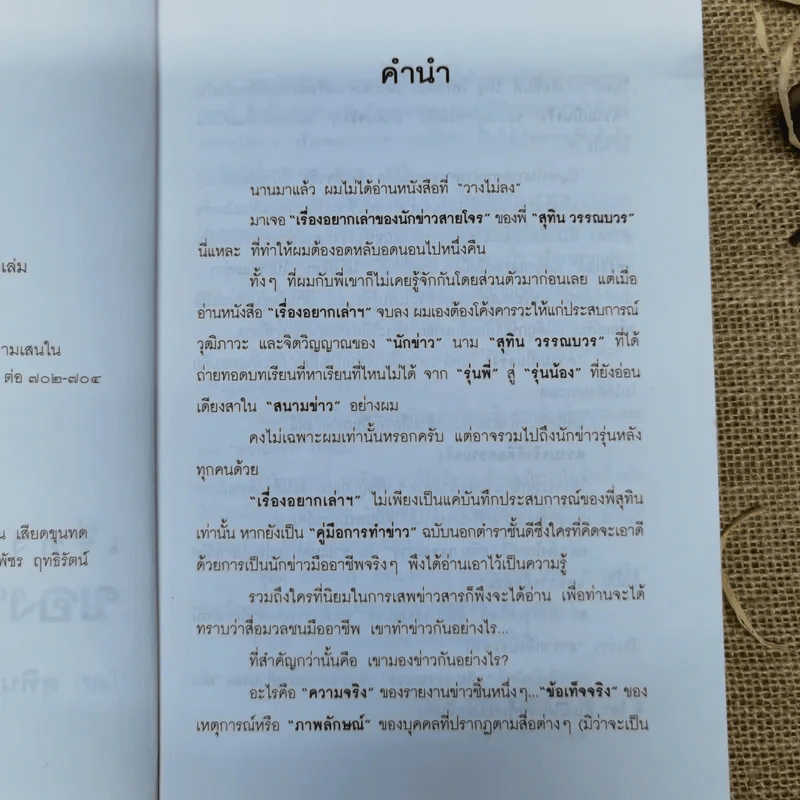 เล่ม
ามเสนใน
ต่อ ๗๐๒-๗๐๔
น เสียดขุนทด
พัชร ฤทธิรัตน์
คำนำ
นานมาแล้ว ผมไม่ได้อ่านหนังสือที่ "วางไม่ลง"
มาเจอ "เรื่องอยากเล่าของนักข่าวสายโจร" ของพี่ "สุทิน วรรณบวร"
นี่แหละ ที่ทำให้ผมต้องอดหลับอดนอนไปหนึ่งคืน
ทั้งๆ ที่ผมกับพี่เขาก็ไม่เคยรู้จักกันโดยส่วนตัวมาก่อนเลย แต่เมื่อ
อ่านหนังสือ "เรื่องอยากเล่าฯ" จบลง ผมเองต้องโค้งคารวะให้แก่ประสบการณ์
วุฒิภาวะ และจิตวิญญาณของ "นักข่าว" นาม "สุทิน วรรณบวร" ที่ได้
ถ่ายทอดบทเรียนที่หาเรียนที่ไหนไม่ได้ จาก "รุ่นพี่" สู่ "รุ่นน้อง" ที่ยังอ่อน
เดียงสาใน "สนามข่าว" อย่างผม
คงไม่เฉพาะผมเท่านั้นหรอกครับ แต่อาจรวมไปถึงนักข่าวรุ่นหลัง
ทุกคนด้วย
"เรื่องอยากเล่าฯ" ไม่เพียงเป็นแค่บันทึกประสบการณ์ของพี่สุทิน
เท่านั้น หากยังเป็น "คู่มือการทำข่าว" ฉบับนอกตำราชั้นดีซึ่งใครที่คิดจะเอาดี
ด้วยการเป็นนักข่าวมืออาชีพจริงๆ พึงได้อ่านเอาไว้เป็นความรู้
รวมถึงใครที่นิยมในการเสพข่าวสารก็พึงจะได้อ่าน เพื่อท่านจะได้
ทราบว่าสื่อมวลชนมืออาชีพ เขาทำข่าวกันอย่างไร...
ที่สำคัญกว่านั้นคือ เขามองข่าวกันอย่างไร?
อะไรคือ "ความจริง" ของรายงานข่าวชิ้นหนึ่งๆ..."ข้อเท็จจริง" ของ
เหตุการณ์หรือ "ภาพลักษณ์" ของบุคคลที่ปรากฏตามสื่อต่างๆ (มิว่าจะเป็น